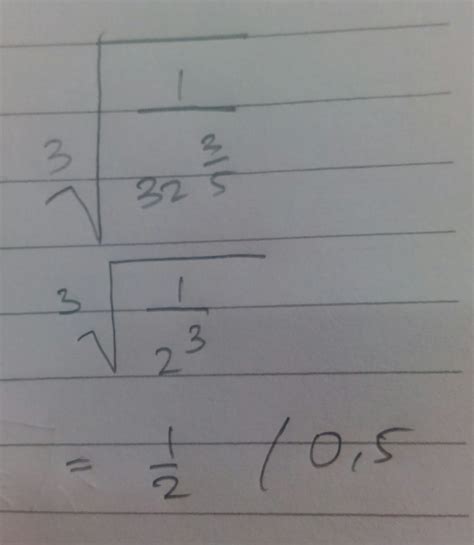 ∛(1/32^(3/5))
∛(1/2^3)
= 1/2 / 0,5